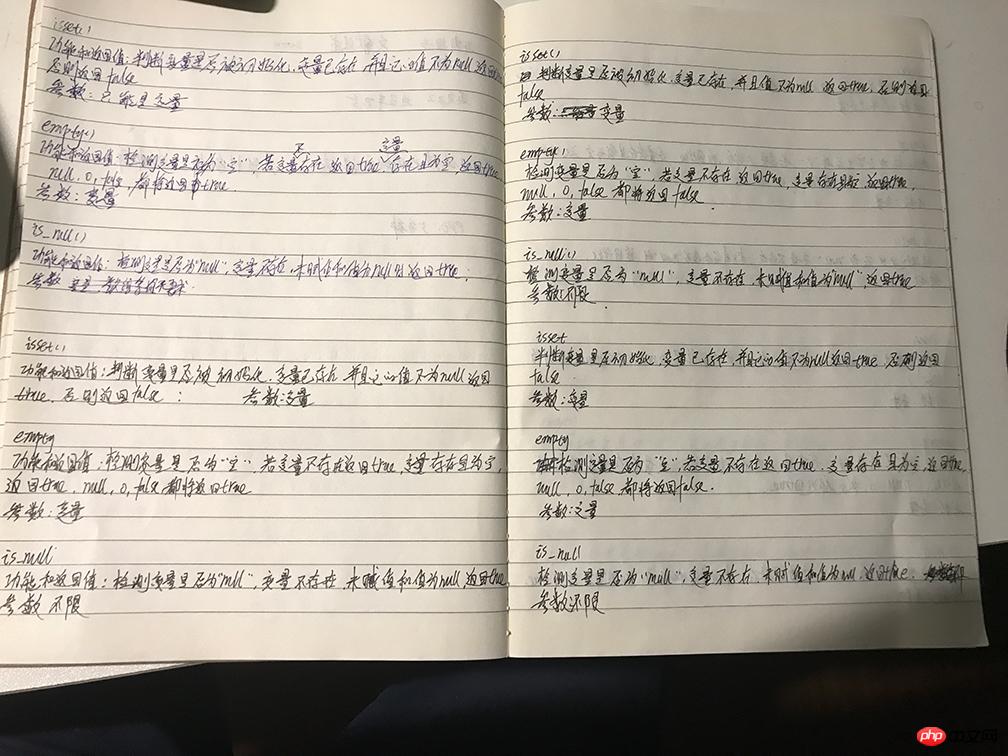 isset()
功能和返回值：判断变量是否被初始化，变量已存在，并且它的值不为null返回true
否则返回false
参数：只能是变量
empty()
功能和返回值：检测变量是否为"空"，若变量不存在返回true，变量存在且为空，返回true
null, 0, false 都将返回true
参数：变量
is_null()
功能和返回值：检测变量是否为"null"，变量不存在，未赋值和值为null时返回true；
参数
isset()
功能和返回值：判断变量是否被初始化，变量已存在，并且它的值不为null返回
true，否则返回false ； 参数：变量
empty
功能和返回值：检测变量是否为"空"，若变量不存在返回true，变量存在且为空，
返回true，null, 0, false都将返回true
参数：变量
is_null
功能和返回值：检测变量是否为"null"，变量不存在，未赋值和值为null返回true
参数 不限
isset()
判断变量是否被初始化，变量已存在，并且值不为null 返回true，否则返回
false
参数：变量
empty()
检测变量是否为"空"，若变量不存在返回true，变量存在且空，返回true，
null, 0, false 都将返回false.
参数：变量
is_null()
检测变量是否为"null"，变量不存在，未赋值和值为"null"，返回true
参数：不限
isset
判断变量是否初始化，变量已存在，并且它的值不为null返回true，否则返回
false
参数：变量
empty
检测变量是否为"空"，若变量不存在返回true，变量存在且为空，返回true，
null, 0, false, 都将返回false.
参数：变量
is_null
检测变量是否为"null"，变量不存在，未赋值和值为null 返回true.
参数：不限
php 中文网